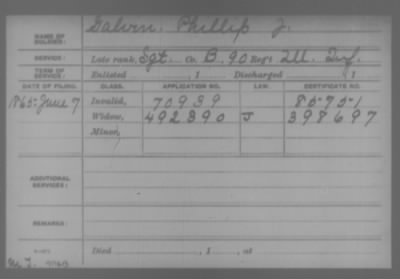 Galvin, Phillip J.
NAME OF SOLDIER:
SERVICE: Late rank, Sgt. Co. B, 90 Reg't Ill. Inf.
TERM OF SERVICE: Enlisted , 1 Discharged , 1
DATE OF FILING. CLASS. APPLICATION NO. LAW. CERTIFICATE NO.
1865 June 7 Invalid, 70939 85751
Widow, 492390 J 398697
Minor,
ADDITIONAL SERVICES:
REMARKS:
Died , 1 , at